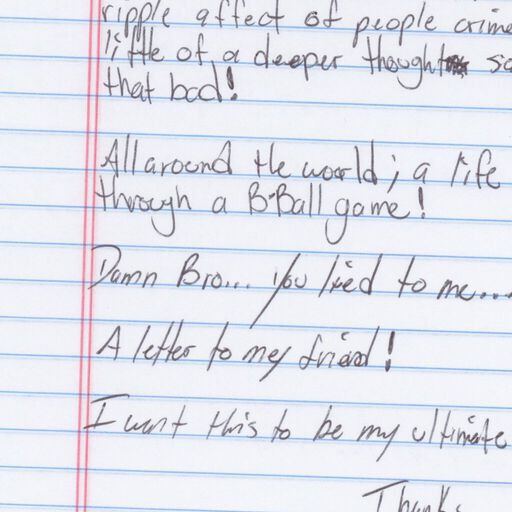 ripple affect of people crime
little of a deeper thought so
that bad!
All around the world; a life
through a B-Ball game!
Damn Bro... you lied to me...
A letter to my friend!
I want this to be my ultimate
Thanks